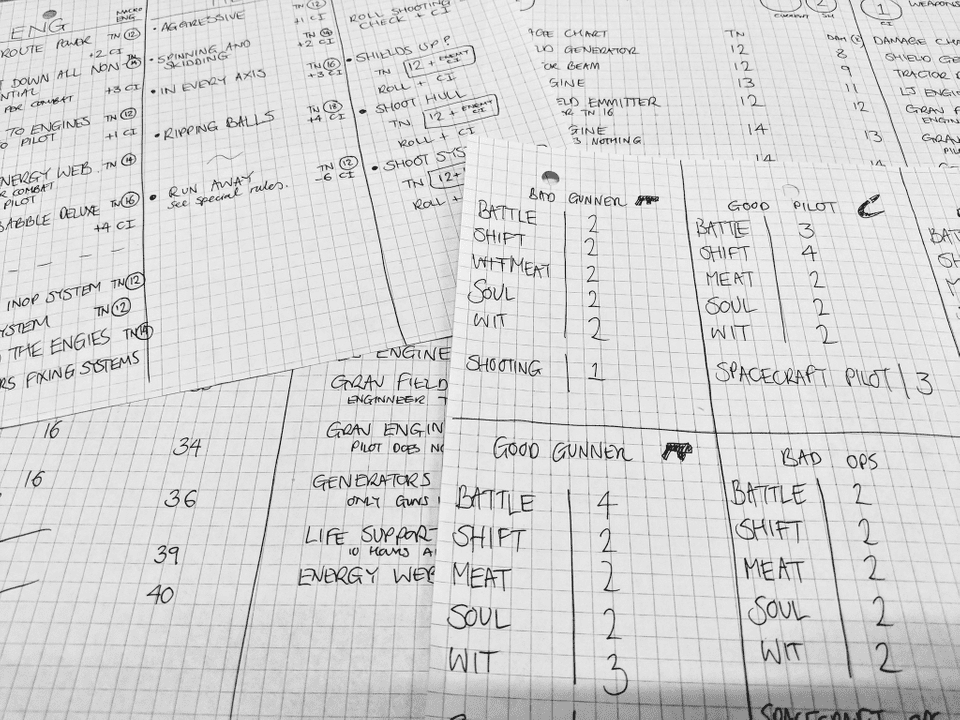 ENG
MACRO
ENG
ROUTE POWER TN 12
+2 CI
DOWN ALL NON-
FOR COMBAT
+3 CI
TO ENGINES TN 12
PILOT
+1 CI
WEB TN 14
COMBAT
PILOT
BABBLE DELUXE TN 16
+4 CI
INOP SYSTEM TN 12
SYSTEM TN 12
THE ENGIES TN 14
FIXING SYSTEMS
• AGGRESSIVE
+1 CI
• SPINNING AND
SKIDDING
+2 CI
• IN EVERY AXIS TN 16
+3 CI
• RIPPING BALLS TN 18
+4 CI
• RUN AWAY TN 12
see special rules. -6 CI
ROLL SHOOTING
CHECK + CI
• SHIELDS UP?
TN 12 + ENEMY CI
ROLL + CI
• SHOOT HULL
TN 12 + ENEMY CI
ROLL + CI
• SHOOT SYS
TN 12+
ROLL +
CHART TN
GENERATOR 12
BEAM 12
GINE 13
EMMITTER 12
TN 16
GINE 14
3 NOTHING
14
CURRENT
1
CI
WEAPONS
DAM
8
9
11
12
13
14
DAMAGE CHA
SHIELD GE
TRACTOR
LJ ENGI
GRAV
ENGIN
GRAV
PIL
BAD GUNNER
BATTLE 2
SHIFT 2
WIT MEAT 2
SOUL 2
WIT 2
SHOOTING 1
GOOD PILOT
BATTLE 3
SHIFT 4
MEAT 2
SOUL 2
WIT 2
SPACECRAFT PILOT 3
GOOD GUNNER
BATTLE 4
SHIFT 2
MEAT 2
SOUL 2
WIT 3
BAD OPS
BATTLE 2
SHIFT 2
MEAT 2
SOUL 2
WIT 2
16 34
16 36
39
40
ENGINE
GRAV FIELD
ENGINNEER
GRAV ENGIN
PILOT DOES NO
GENERATORS
ONLY GUNS
LIFE SUPPORT
10 HOURS
ENERGY WEB